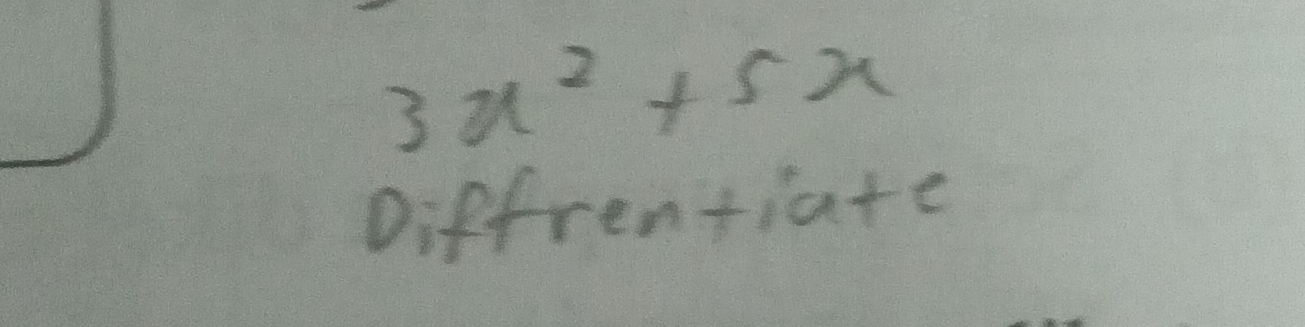 3x² + 5x
Diffrentiate